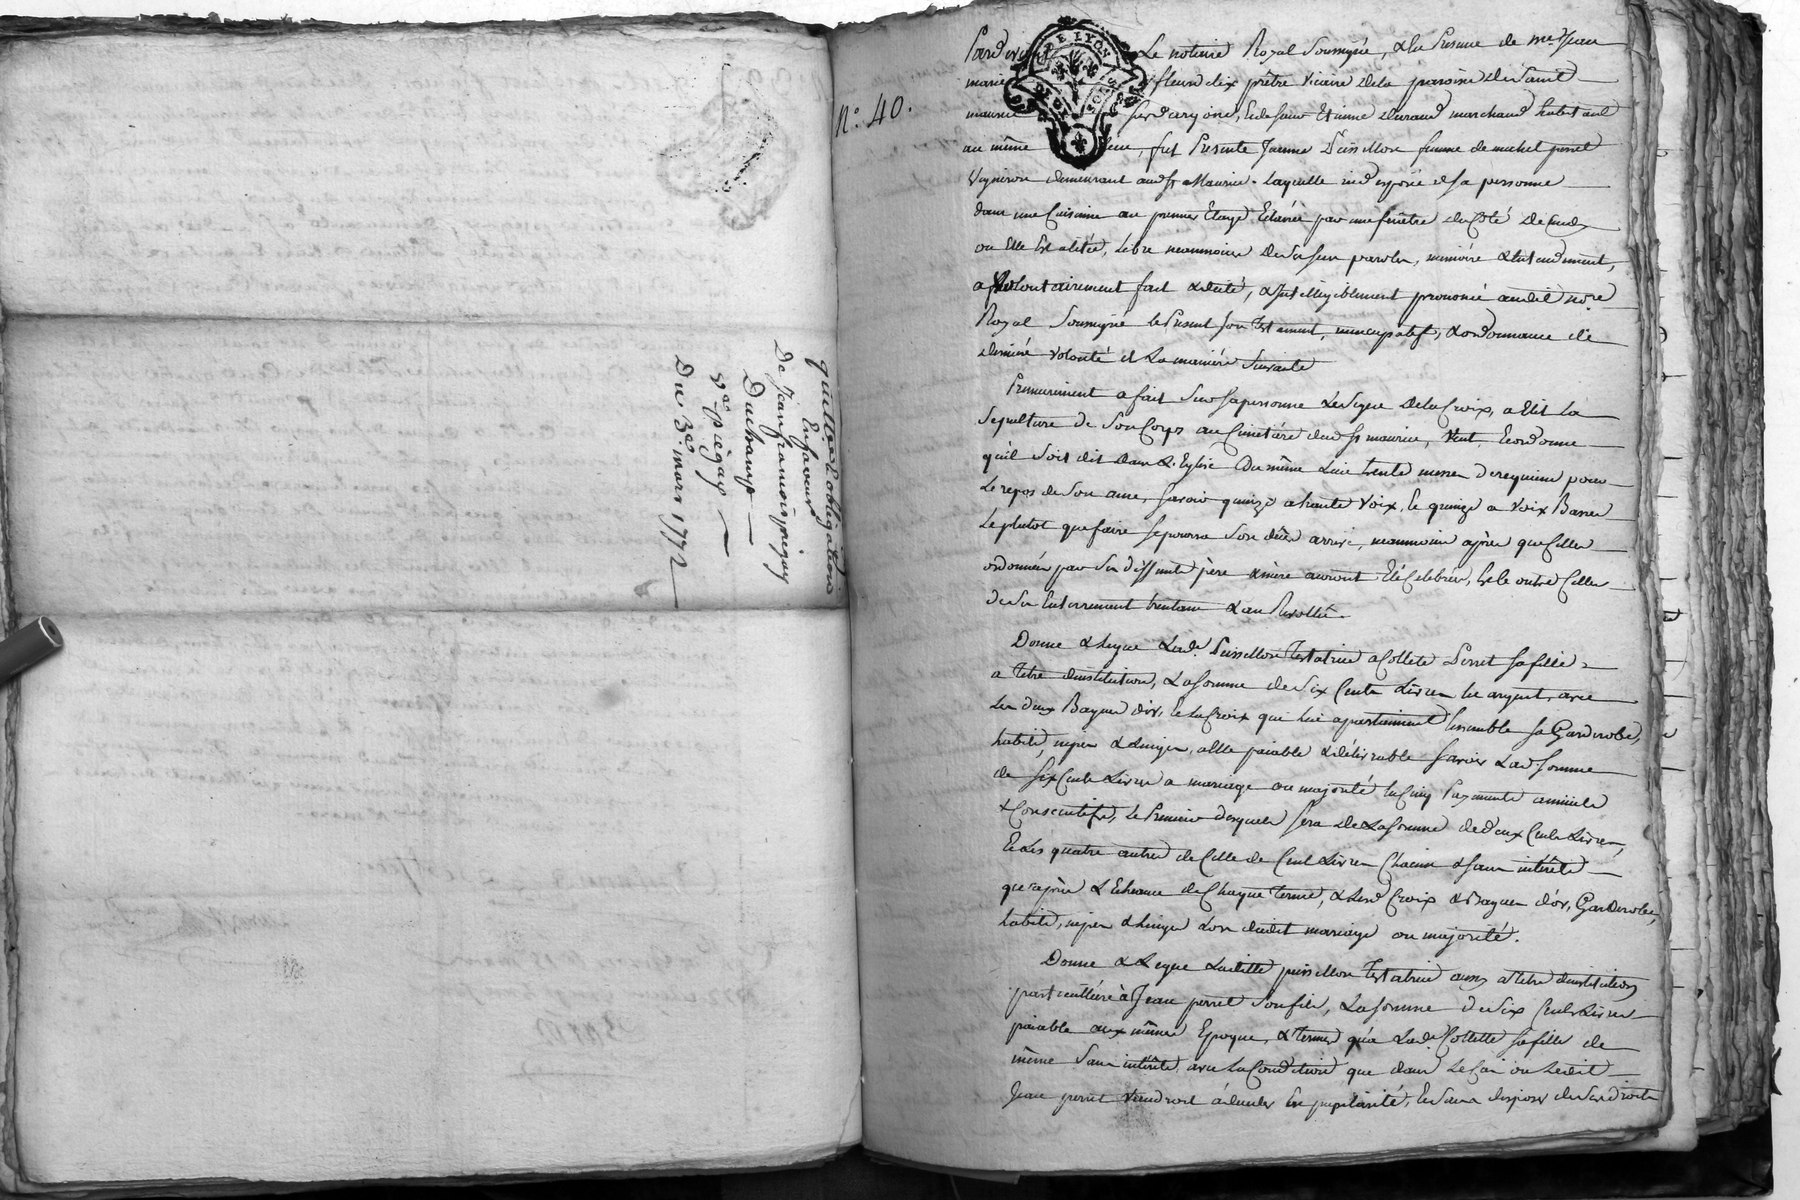 quittance & obligation
En faveur
De Jean françois pregay
Duchamp
Du 3e. mars 1772
N.o 40.
DE LYON
Pardevant Le notaire Royal Soussigné, & En Presence de me. Jean
marie fleurdelix prêtre vicaire dela paroisse de Saint
maurice sur dargoire, & de Sieur Etienne durand marchand habitant
au même Lieu, fut Presente Jeanne Puissillon femme de michel perret
Vigneron demeurant aud. St. Maurice. Laquelle indisposée de sa personne
dans une Cuisine au premier Etage Eclairée par une fenêtre du Côté De
ou Elle Est alitée, Libre neanmoins de ses sens parole, mémoire & Entendement,
a volontairement fait & dicté, & Intelligiblement prononcé audit no.re
Royal Soussigné le Present son Testament, nuncupatif, & ordonnance de
derniere volonté et La manière Suivante
Premierement a fait Sur sa personne Le Signe De la Croix, a Elit La
Sepulture de Son Corps au Cimetière dud. St. maurice, Veut, & ordonne
qu'il Soit dit dans L'Eglise Du même Lieu trente messes de requiem pour
Le repos de Son ame, savoir quinze a haute Voix, & quinze a Voix Basse
Le plutot que faire se pourra Son décès arrivé, neanmoins après que Celles
ordonnées par Ses deffunts père & mère auront Eté Celebrées, Et le outre Celles
de Son Enterrement trentane & au Revollu.
Donne & Legue Lad.e Puissillon Testatrice a Collete Perret sa fille
a titre d'institution, La somme de Six Cents Livres En argent, avec
Les deux Bagues d'or, & La Croix qui Lui apartiennent Ensemble sa Garderobe,
habits, nipes & Linges, a Elle païable & délivrable savoir Lad. somme
de six Cents Livres a mariage ou majorité En Cinq Payements annuels
& Consecutifs, Le Premier desquels sera de La somme de deux Cents Livres,
Et Les quatre autres de Celle de Cent Livres Chacun & sans intérêts
qu'après L'Echeance de Chaque terme, & Lesd. Croix & Bagues d'or, Garderobe,
habits, nipes & Linges Lors dudit mariage ou majorité.
Donne & Legue Ladite puissillon Testatrice aussy a titre d'institution
particulière à Jean perret Son fils, La somme de Six Cents Livres
païable aux mêmes Epoques, & termes qu'a Lad. Collette sa fille de
même Sans intérêts, avec La Condition que dans Le Cas ou Ledit
Jean perret Viendroit à déceder En pupilarité, & Sans disposer de Ses droits